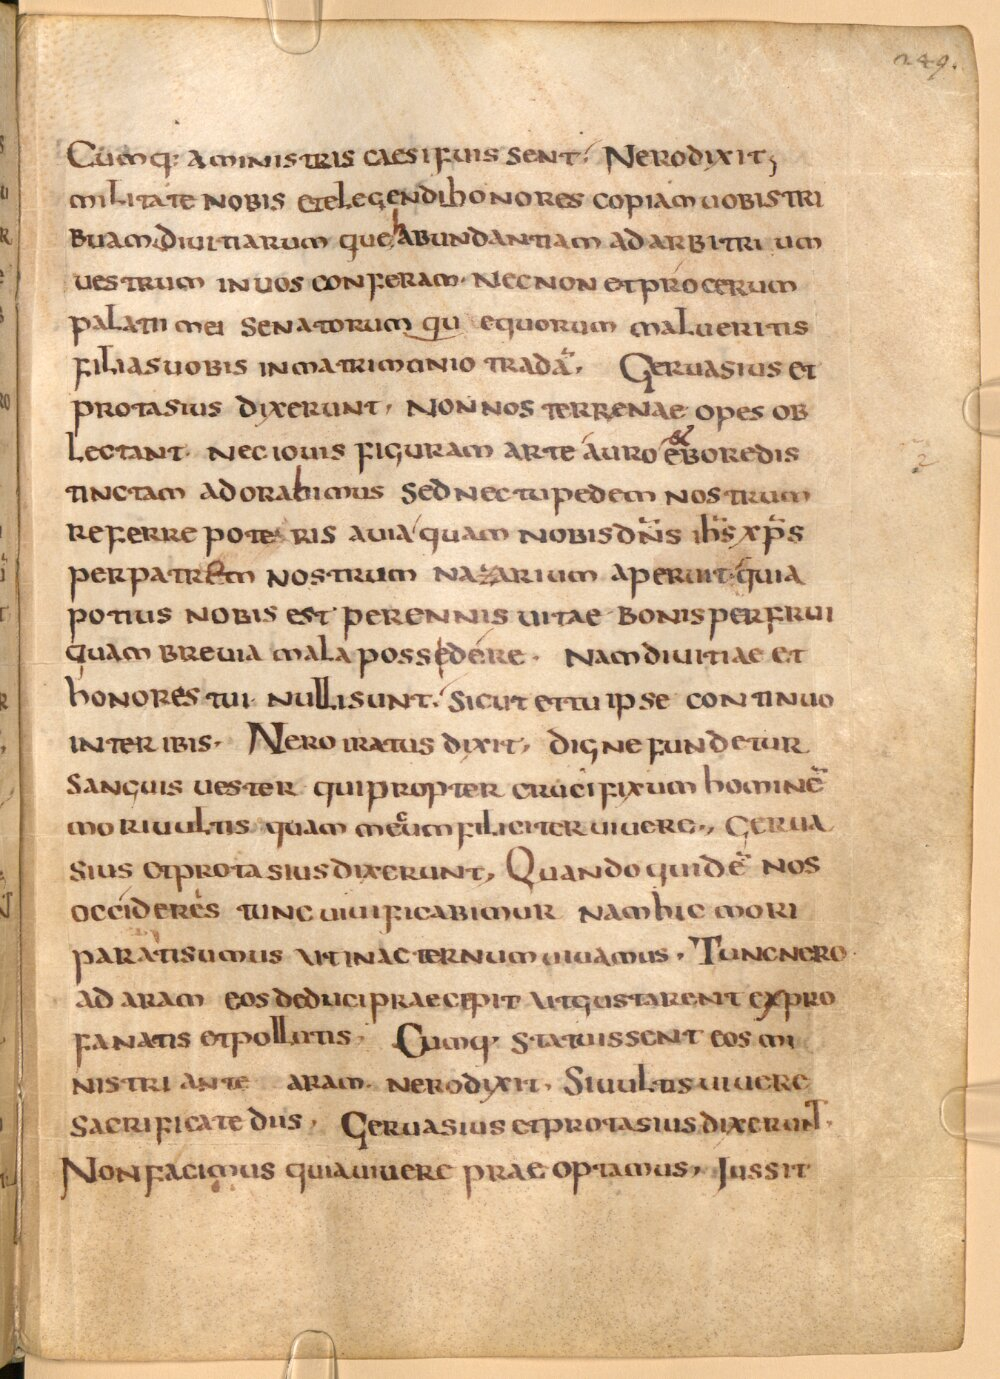 249.
Cumq: a ministris caesi fuissent. Nero dixit;
militate nobis et elegendi honores copiam uobis tri
buam. diuitiarum que habundantiam ad arbitrium
uestrum in uos conferam. Nec non et procerum
palatii mei senatorum qu equorum malueritis
filias uobis in matrimonio tradā. Geruasius et
protasius dixerunt, Non nos terrenae opes ob
lectant. nec iouis figuram arte auro & eboredis
tinctam adorabimus sed nec tu pedem nostrum
referre poteris a uia quam nobis dn̄s ih̄s xp̄s
per patrem nostrum nazarium aperuit. quia
potius nobis est perennis uitae bonis perfrui
quam breuia mala possedere. Nam diuitiae et
honores tui nulli sunt. Sicut et tu ipse continuo
interibis. Nero iratus dixit, digne fundetur
sanguis uester qui propter crucifixum hominē
mori uultis quam mecum filiciter uiuere., Gerua
sius et protasius dixerunt, Quando quidē nos
occideres tunc uiuificabimur nam hic mori
parati sumus ut in aeternum uiuamus. Tunc nero
ad aram eos deduci praecepit ut gustarent ex pro
fanatis et pollutis. Cumq. statuissent eos mi
nistri ante aram. nero dyxit. Si uultis uiuere
sacrificate diis. Geruasius et protasius dixerunt.
Non facimus quia uiuere prae optamus, Iussit